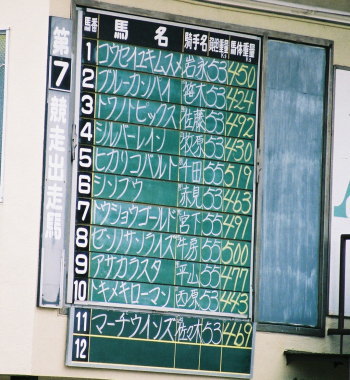 第7競走出走馬
馬番 馬名 騎手名 負担重量 馬体重量
1 コウセイエキムスメ 岩永 53 450
2 ブルーガンバイ 笹木 53 424
3 トワノトビックス 佐藤 53 492
4 シルバーレイン 牧原 53 430
5 ヒカリコバルト 牛田 55 519
6 シンプウ 赤見 53 463
7 トウショウゴールド 宮下 55 491
8 ゼンノサンライズ 牛房 55 500
9 アサカラスタ 平山 55 477
10 トキメキローマン 西原 53 443
11 マーチウインズ 佐々木 53 469
12